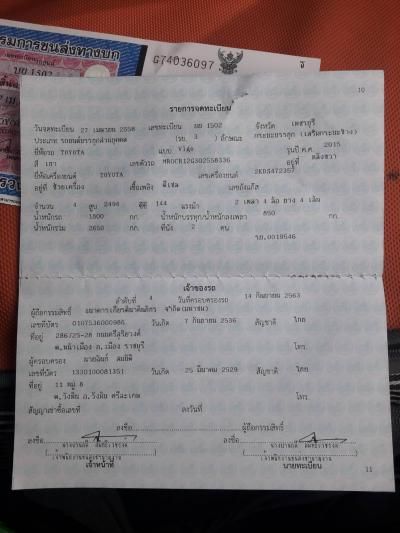 รมการขนส่งทางบก
บย 1502
G74036097
ช
10
รายการจดทะเบียน
วันจดทะเบียน 27 เมษายน 2558 เลขทะเบียน บย 1502 จังหวัด เพชรบุรี
ประเภท รถยนต์บรรทุกส่วนบุคคล (รย. 3) ลักษณะ กระบะบรรทุก (เสริมกระบะข้าง)
ยี่ห้อรถ TOYOTA แบบ Vigo รุ่นปี ค.ศ. 2015
สี เทา เลขตัวรถ MR0CR12G302558336 อยู่ที่
ยี่ห้อเครื่องยนต์ TOYOTA เลขเครื่องยนต์ 2KDS472357
อยู่ที่ ข้างเครื่อง เชื้อเพลิง ดีเซล เลขถังแก๊ส
จำนวน 4 สูบ 2494 ซีซี 144 แรงม้า 2 เพลา 4 ล้อ ยาง 4 เส้น
น้ำหนักรถ 1800 กก. น้ำหนักบรรทุก/น้ำหนักลงเพลา 850 กก.
น้ำหนักรวม 2650 กก. ที่นั่ง 2 คน
รย.0019546
เจ้าของรถ
ลำดับที่ 4 วันที่ครอบครองรถ 14 กันยายน 2563
ผู้ถือกรรมสิทธิ์ ธนาคารเกียรตินาคินภัทร จำกัด(มหาชน)
เลขที่บัตร 0107536000986 วันเกิด 7 กันยายน 2536 สัญชาติ ไทย
ที่อยู่ 286/25-28 ถนนศรีสุริยวงศ์
ต.หน้าเมือง อ.เมือง ราชบุรี โทร.
ผู้ครอบครอง
เลขที่บัตร 1330100081351 วันเกิด 25 มีนาคม 2529 สัญชาติ ไทย
ที่อยู่ 11 หมู่ 8
ศรีสะเกษ โทร.
สัญญาเช่าซื้อเลขที่ ลงวันที่
ลงชื่อ ผู้ถือกรรมสิทธิ์
ลงชื่อ ลงชื่อ
เจ้าหน้าที่ นายทะเบียน
11